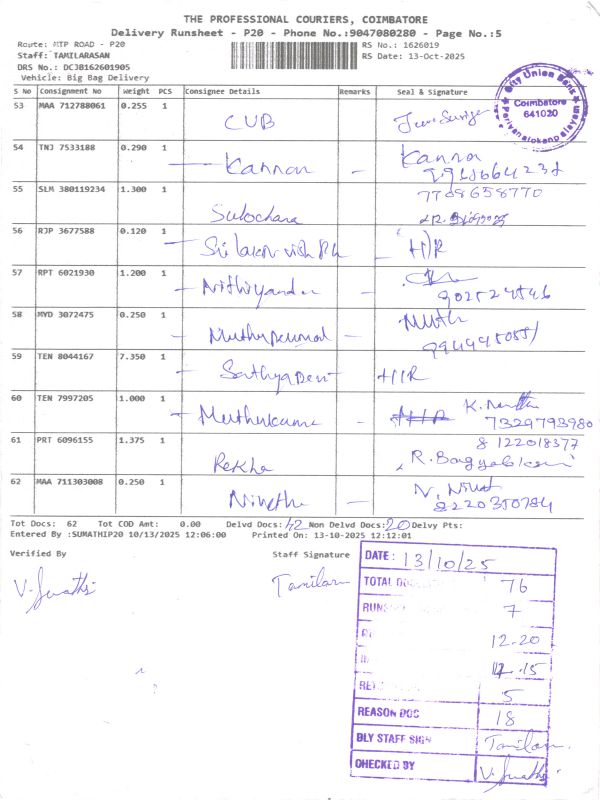 THE PROFESSIONAL COURIERS, COIMBATORE
Delivery Runsheet - P20 - Phone No.:9047080280 - Page No.:5
Route: MTP ROAD - P20
RS No.: 1626019
Staff: TAMILARASAN
RS Date: 13-Oct-2025
DRS No.: DC38162601905
Vehicle: Big Bag Delivery
City Union Bank
Coimbatore
641020
S No Consignment No Weight PCS Consignee Details Remarks Seal & Signature
53 MAA 712788061 0.255 1
CUB
54 TNJ 7533188 0.290 1
Kannan - Kannan
55 SLM 380119234 1.300 1
7708658770
Sulochana
56 RJP 3677588 0.120 1
H/R
57 RPT 6021930 1.200 1
Nithiyandan
58 MYD 3072475 0.250 1
Muthuperumal - Muth
59 TEN 8044167 7.350 1
Sathyadevi H/R
60 TEN 7997205 1.000 1
Muthukumar H/R
7329793980
61 PRT 6096155 1.375 1
8122018377
Rekha
62 MAA 711303008 0.250 1
Nivetha -
8220350784
Tot Docs: 62 Tot COD Amt: 0.00 Delvd Docs: 42 Non Delvd Docs: 20 Delvy Pts:
Entered By :SUMATHIP20 10/13/2025 12:06:00 Printed On: 13-10-2025 12:12:01
Verified By
Staff Signature
V. Swathi
Tamilaran
DATE : 13/10/25
TOTAL DOC 76
RUNS 7
12.20
15
RE 5
REASON DOC 18
DLY STAFF SIGN Tamilaran.
CHECKED BY V. Swathi